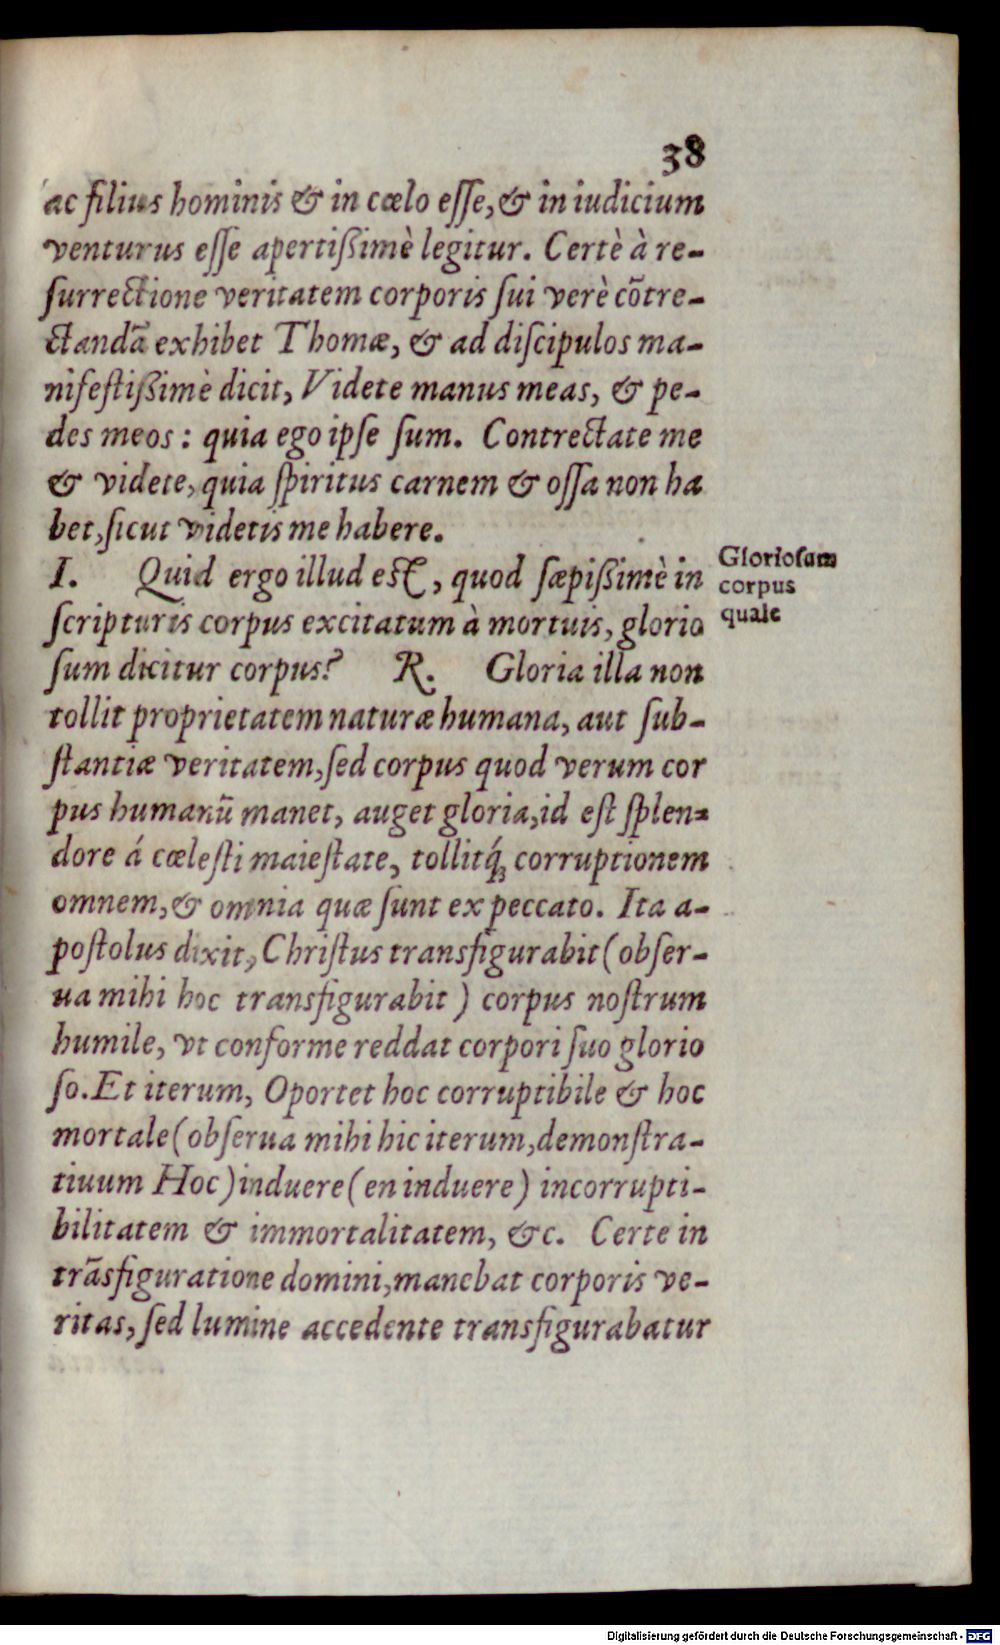 38
ac filius hominis & in cœlo eſſe, & in iudicium
venturus eſſe apertißimè legitur. Certè à re-
ſurrectione veritatem corporis ſui verè cõtre-
ctandã exhibet Thomæ, & ad diſcipulos ma-
nifeſtißimè dicit, Videte manus meas, & pe-
des meos: quia ego ipſe ſum. Contrectate me
& videte, quia ſpiritus carnem & oſſa non ha
bet, ſicut videtis me habere.
I. Quid ergo illud eſt, quod ſæpißimè in
ſcripturis corpus excitatum à mortuis, glorio
ſum dicitur corpus? R. Gloria illa non
tollit proprietatem naturæ humana, aut ſub-
ſtantiæ veritatem, ſed corpus quod verum cor
pus humanũ manet, auget gloria, id eſt ſplen-
dore á cœleſti maieſtate, tollitq́; corruptionem
omnem, & omnia quæ ſunt ex peccato. Ita a-
poſtolus dixit, Chriſtus transfigurabit (obſer-
ua mihi hoc transfigurabit) corpus noſtrum
humile, vt conforme reddat corpori ſuo glorio
ſo. Et iterum, Oportet hoc corruptibile & hoc
mortale (obſerua mihi hic iterum, demonſtra-
tiuum Hoc) induere (en induere) incorrupti-
bilitatem & immortalitatem, &c. Certe in
trãsfiguratione domini, manebat corporis ve-
ritas, ſed lumine accedente transfigurabatur
Glorioſum
corpus
quale
Digitalisierung gefördert durch die Deutsche Forschungsgemeinschaft - DFG